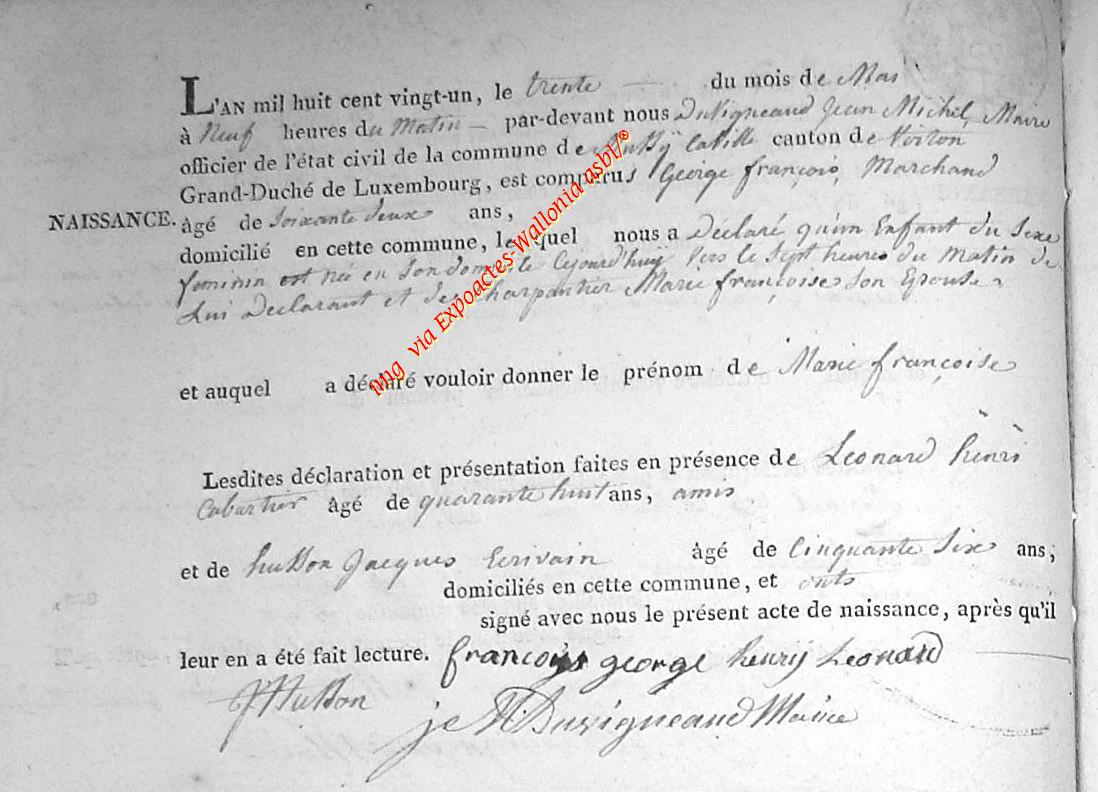 L'AN mil huit cent vingt-un, le trente du mois de Mai
à Neuf heures du Matin par-devant nous Duvigneaud Jean Michel, Maire
officier de l'état civil de la commune de la ville canton de Virton
Grand-Duché de Luxembourg, est comparus George françois, Marchand
NAISSANCE. âgé de Soixante deux ans,
domicilié en cette commune, lequel nous a Declaré qu'un Enfant du Sexe
feminin est née en Son domicile Cejourd'huy vers le Sept heures du Matin de
Lui Declarant et de Charpantier Marie françoise Son Epouse
et auquel a déclaré vouloir donner le prénom de Marie françoise
Lesdites déclaration et présentation faites en présence de Leonard henri
Cabartier âgé de quarante huit ans, amis
et de husson Jacques Ecrivain âgé de Cinquante Six ans,
domiciliés en cette commune, et onts
signé avec nous le présent acte de naissance, après qu'il
leur en a été fait lecture. francois george henrij Leonard
J Husson
je M. Duvigneaud Maire
nmg via Expoactes-Wallonia asbl/®